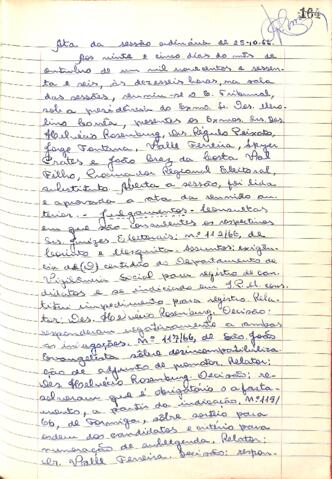 164
Ata da sessão ordinária de 25-10-66.
Aos vinte e cinco dias do mês de
outubro de um mil novecentos e sessen-
ta e seis, às dezesseis horas, na sala
das sessões, reuniu-se o E. Tribunal,
sob a presidência do Exmo. Sr. Des.
presentes os Exmos. Srs. Des.
Helvécio Rosenburg, Drs. Régulo Peixoto,
Jorge Fontana, Valle Ferreira,
Prates e João Braz da Costa Val
Filho, Procurador Regional Eleitoral,
substituto. Aberta a sessão, foi lida
e aprovada a ata da reunião an-
terior. - Julgamentos - Consultas
em que são consulentes os respectivos
Srs. Juízes Eleitorais: nº 112/66, de
Corinto e Mesquita. Assuntos: exigên-
cia de certidão do Departamento de
Vigilância Social para registro de can-
didatos e se indiciado em I.P.M. cons-
titui impedimento para registro. Rela-
tor: Des. Helvécio Rosenburg. Decisão:
responderam negativamente a ambas
as indagações. Nº 117/66, de São João
Evangelista sôbre desincompatibiliza-
ção de adjunto de promotor. Relator:
Des. Helvécio Rosenburg. Decisão: re-
solveram que é obrigatório o afasta-
mento, a partir da indicação. Nº 119/
66, de Formiga, sôbre sorteio para
ordem dos candidatos e critério para
numeração de sublegenda. Relator:
Dr. Valle Ferreira. Decisão: respon-